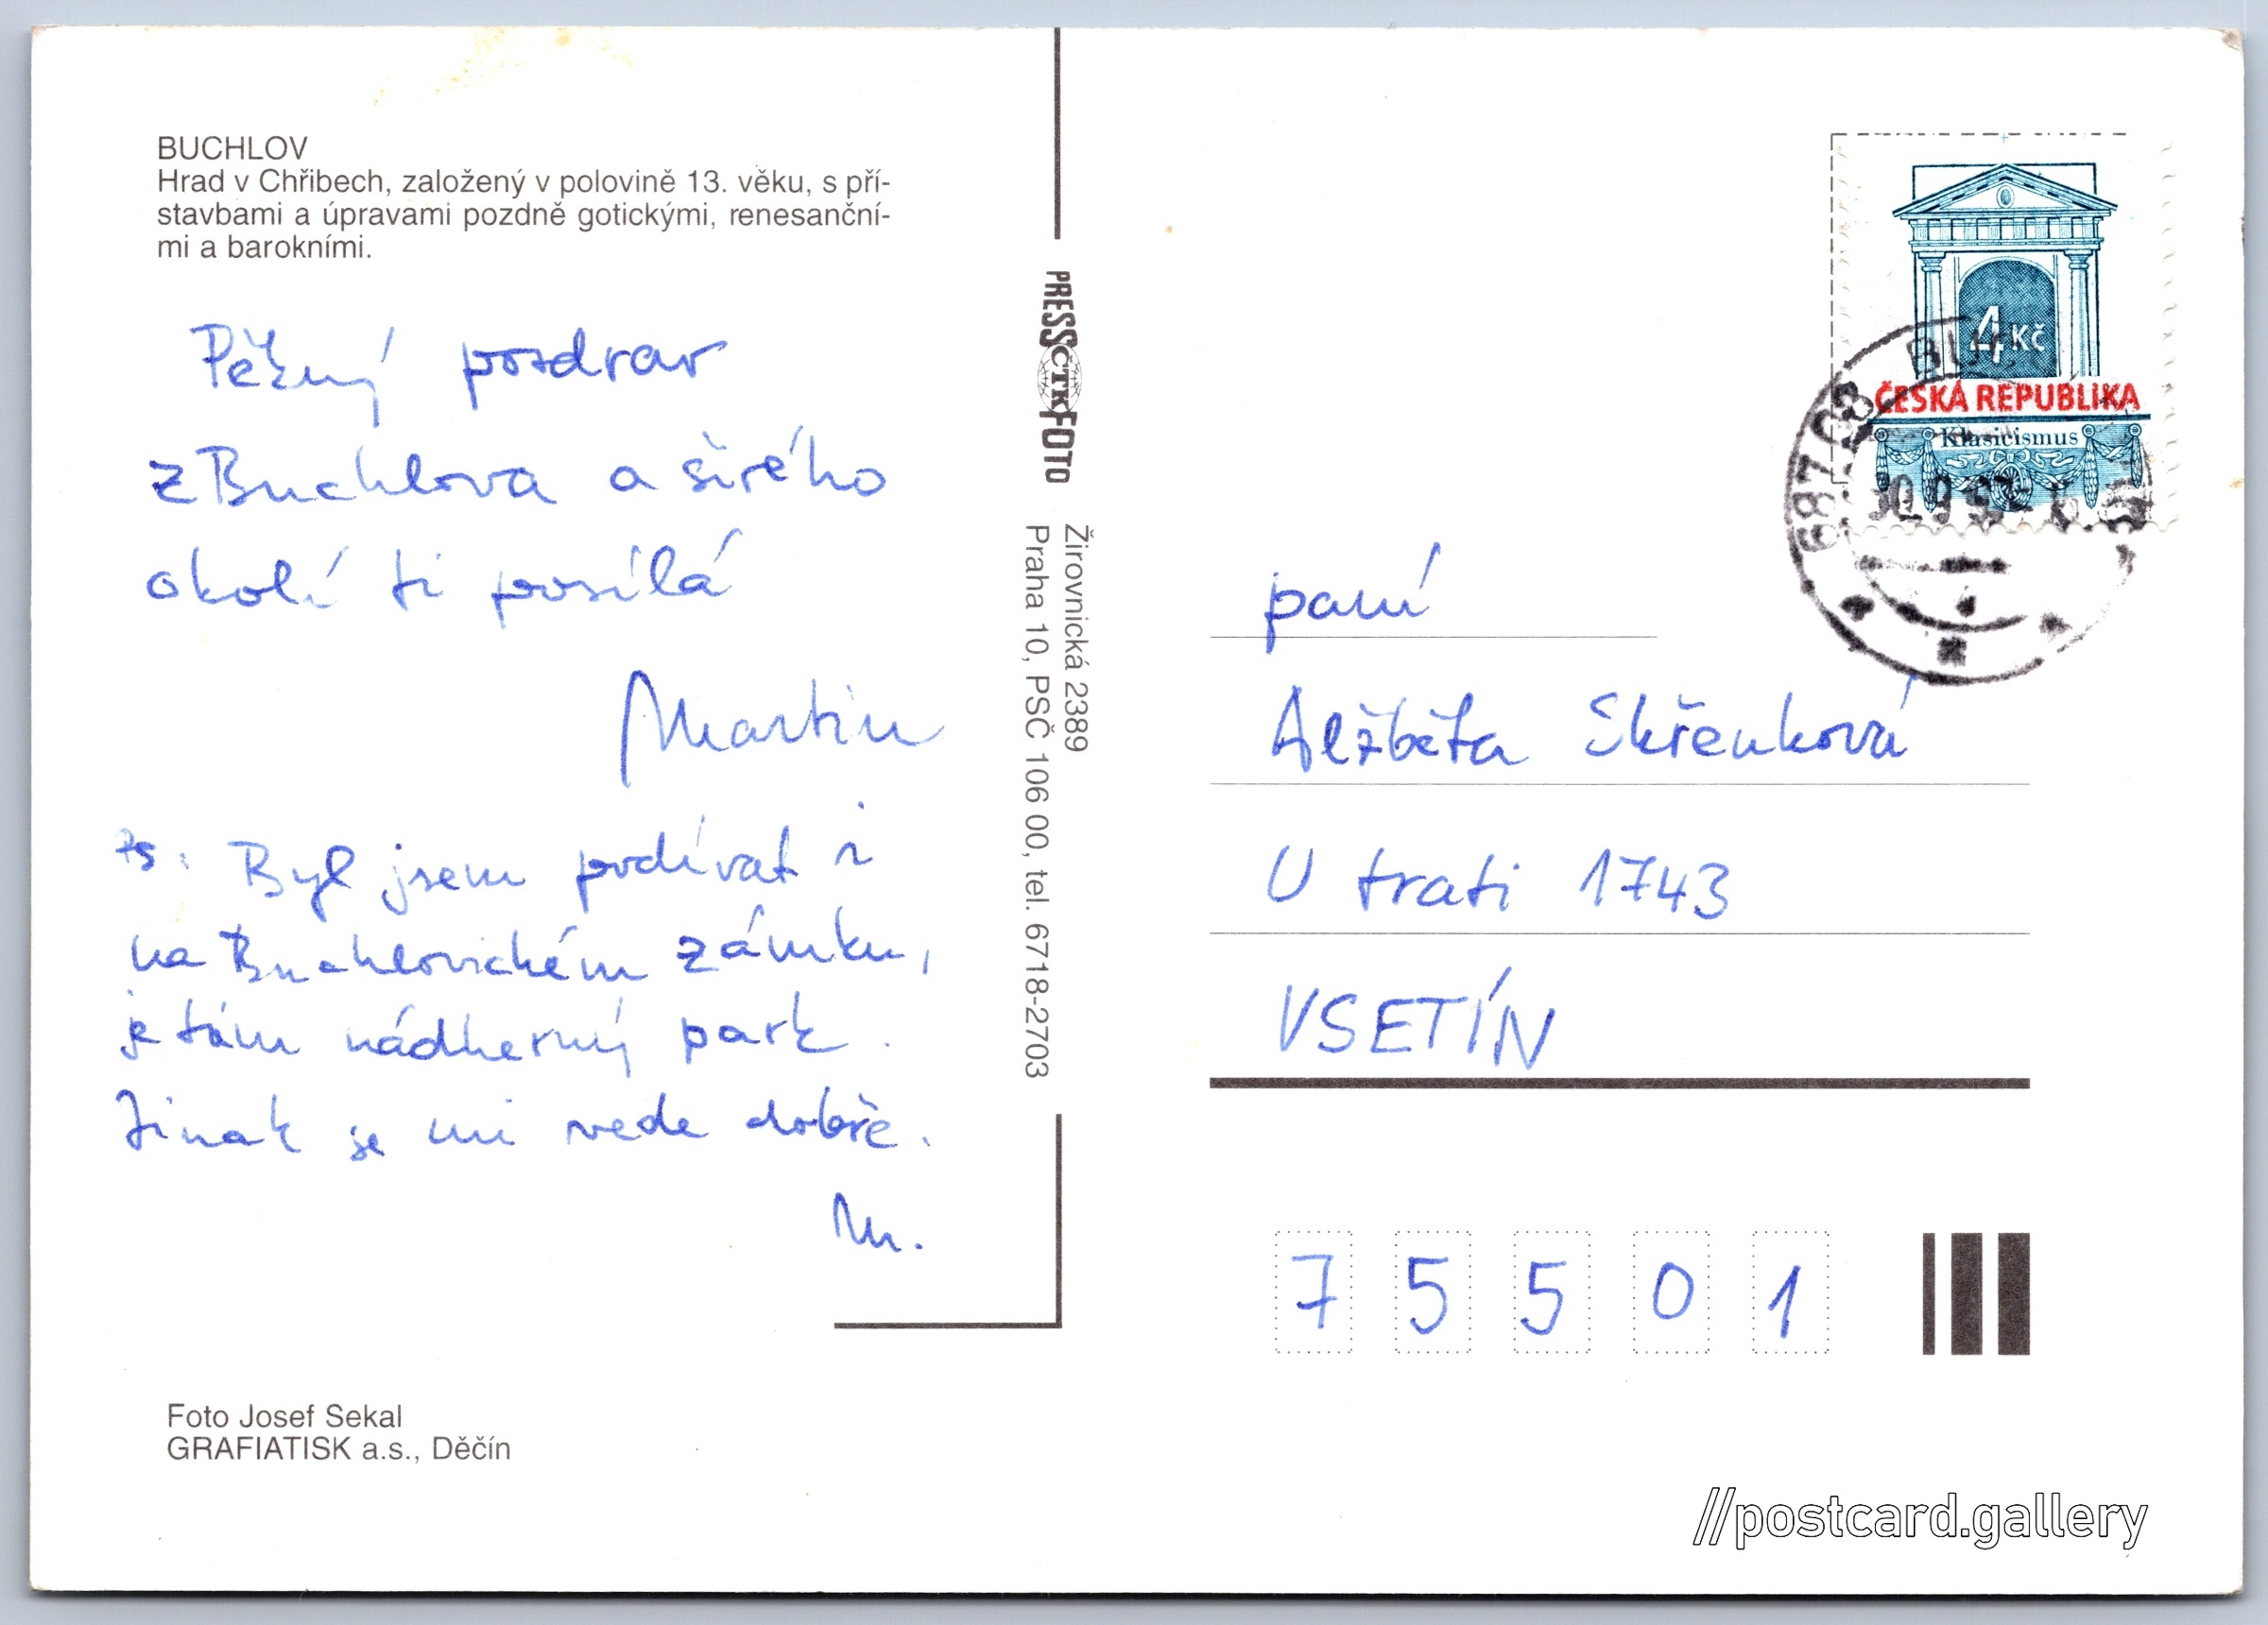 BUCHLOV
Hrad v Chřibech, založený v polovině 13. věku, s pří-
stavbami a úpravami pozdně gotickými, renesanční-
mi a barokními.
Pěkný pozdrav
z Buchlova a širého
okolí ti posílá
Martin
PS: Byl jsem podívat i
na Buchlovickém zámku,
je tám nádherný park.
Jinak se mi vede dobře.
M.
Foto Josef Sekal
GRAFIATISK a.s., Děčín
PRESSFOTO
ČTK
Žirovnická 2389
Praha 10, PSČ 106 00, tel. 6718-2703
4 Kč
ČESKÁ REPUBLIKA
Klasicismus
687 08 BU
paní
Alžběta Skřenková
U trati 1743
VSETÍN
7 5 5 0 1
//postcard.gallery